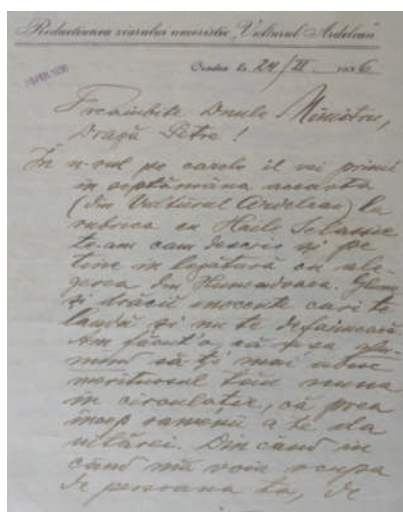 Redacțiunea ziarului umoristic „Vulturul Ardelean"
Oradea la 24/II 1936
Preaiubite Dnule Ministru,
Dragă Petre!
În n-rul pe carele îl vei primi
în săptămâna aceasta
(din Vulturul Ardelean) la
rubrica cu Haile Selassie
te-am cam descris și pe
tine în legătură cu ale-
gerea din Hunedoara. Glume
și drăcii inocente cari te
laudă și nu te defaimează
Am făcut'o, ca și-n glu-
mind să-ți mai
numele
în circulație, că prea
încep oamenii a te da
uitărei. Din când în
când mă voiu ocupa
de persoana ta, de